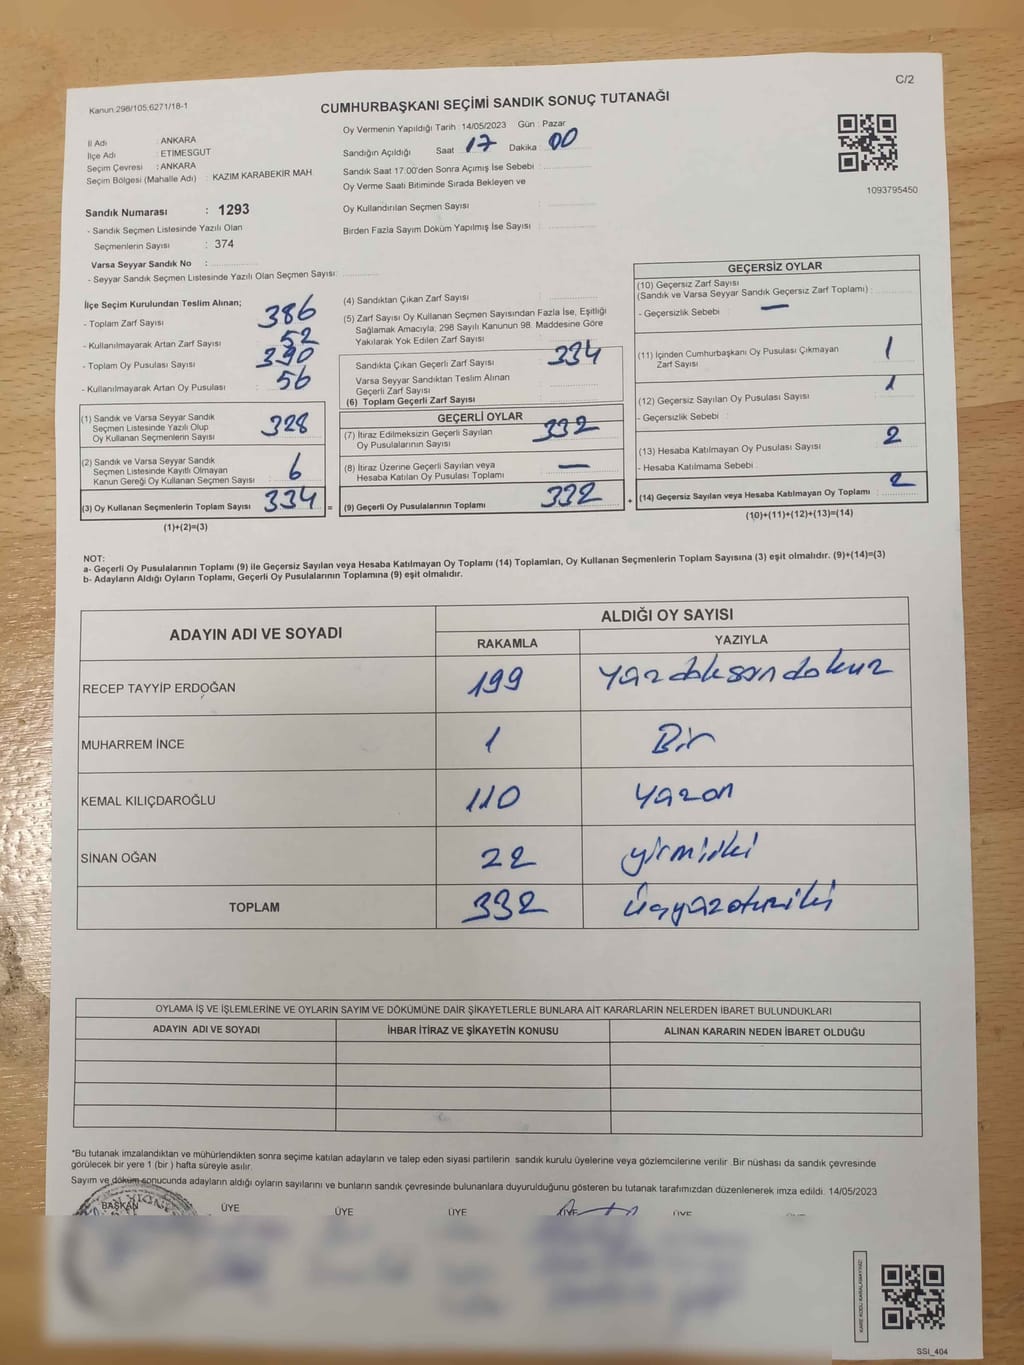 C/2
Kanun:298/105;6271/18-1
CUMHURBAŞKANI SEÇİMİ SANDIK SONUÇ TUTANAĞI
İl Adı : ANKARA
İlçe Adı : ETİMESGUT
Seçim Çevresi : ANKARA
Seçim Bölgesi (Mahalle Adı) : KAZIM KARABEKİR MAH
Sandık Numarası : 1293
- Sandık Seçmen Listesinde Yazılı Olan
Seçmenlerin Sayısı : 374
Varsa Seyyar Sandık No :
- Seyyar Sandık Seçmen Listesinde Yazılı Olan Seçmen Sayısı:
Oy Vermenin Yapıldığı Tarih :14/05/2023 Gün : Pazar
Sandığın Açıldığı Saat 17 Dakika 00
Sandık Saat 17.00'den Sonra Açımış İse Sebebi :
Oy Verme Saati Bitiminde Sırada Bekleyen ve
Oy Kullandırılan Seçmen Sayısı :
Birden Fazla Sayım Döküm Yapılmış İse Sayısı :
1093795450
İlçe Seçim Kurulundan Teslim Alınan;
- Toplam Zarf Sayısı 386
- Kullanılmayarak Artan Zarf Sayısı 52
- Toplam Oy Pusulası Sayısı 390
- Kullanılmayarak Artan Oy Pusulası 56
(1) Sandık ve Varsa Seyyar Sandık
Seçmen Listesinde Yazılı Olup
Oy Kullanan Seçmenlerin Sayısı : 328
(2) Sandık ve Varsa Seyyar Sandık
Seçmen Listesinde Kayıtlı Olmayan
Kanun Gereği Oy Kullanan Seçmen Sayısı : 6
(3) Oy Kullanan Seçmenlerin Toplam Sayısı 334 =
(1)+(2)=(3)
(4) Sandıktan Çıkan Zarf Sayısı :
(5) Zarf Sayısı Oy Kullanan Seçmen Sayısından Fazla İse, Eşitliği
Sağlamak Amacıyla, 298 Sayılı Kanunun 98. Maddesine Göre
Yakılarak Yok Edilen Zarf Sayısı :
Sandıkta Çıkan Geçerli Zarf Sayısı : 334
Varsa Seyyar Sandıktan Teslim Alınan
Geçerli Zarf Sayısı :
(6) Toplam Geçerli Zarf Sayısı
GEÇERLİ OYLAR
(7) İtiraz Edilmeksizin Geçerli Sayılan
Oy Pusulalarının Sayısı : 332
(8) İtiraz Üzerine Geçerli Sayılan veya
Hesaba Katılan Oy Pusulası Toplamı : —
(9) Geçerli Oy Pusulalarının Toplamı : 332 +
GEÇERSİZ OYLAR
(10) Geçersiz Zarf Sayısı
(Sandık ve Varsa Seyyar Sandık Geçersiz Zarf Toplamı) :
- Geçersizlik Sebebi : —
(11) İçinden Cumhurbaşkanı Oy Pusulası Çıkmayan
Zarf Sayısı : 1
(12) Geçersiz Sayılan Oy Pusulası Sayısı : 1
- Geçersizlik Sebebi :
(13) Hesaba Katılmayan Oy Pusulası Sayısı : 2
- Hesaba Katılmama Sebebi
(14) Geçersiz Sayılan veya Hesaba Katılmayan Oy Toplamı : 2
(10)+(11)+(12)+(13)=(14)
NOT:
a- Geçerli Oy Pusulalarının Toplamı (9) ile Geçersiz Sayılan veya Hesaba Katılmayan Oy Toplamı (14) Toplamları, Oy Kullanan Seçmenlerin Toplam Sayısına (3) eşit olmalıdır. (9)+(14)=(3)
b- Adayların Aldığı Oyların Toplamı, Geçerli Oy Pusulalarının Toplamına (9) eşit olmalıdır.
ADAYIN ADI VE SOYADI ALDIĞI OY SAYISI
RAKAMLA YAZIYLA
RECEP TAYYİP ERDOĞAN 199 yüzdoksandokuz
MUHARREM İNCE 1 Bir
KEMAL KILIÇDAROĞLU 110 yüzon
SİNAN OĞAN 22 yirmiiki
TOPLAM 332 üçyüzotuziki
OYLAMA İŞ VE İŞLEMLERİNE VE OYLARIN SAYIM VE DÖKÜMÜNE DAİR ŞİKAYETLERLE BUNLARA AİT KARARLARIN NELERDEN İBARET BULUNDUKLARI
ADAYIN ADI VE SOYADI İHBAR İTİRAZ VE ŞİKAYETİN KONUSU ALINAN KARARIN NEDEN İBARET OLDUĞU
*Bu tutanak imzalandıktan ve mühürlendikten sonra seçime katılan adayların ve talep eden siyasi partilerin sandık kurulu üyelerine veya gözlemcilerine verilir .Bir nüshası da sandık çevresinde
görülecek bir yere 1 (bir ) hafta süreyle asılır.
Sayım ve döküm sonucunda adayların aldığı oyların sayılarını ve bunların sandık çevresinde bulunanlara duyurulduğunu gösteren bu tutanak tarafımızdan düzenlenerek imza edildi. 14/05/2023
BAŞKAN ÜYE ÜYE ÜYE ÜYE ÜYE
SSI_404